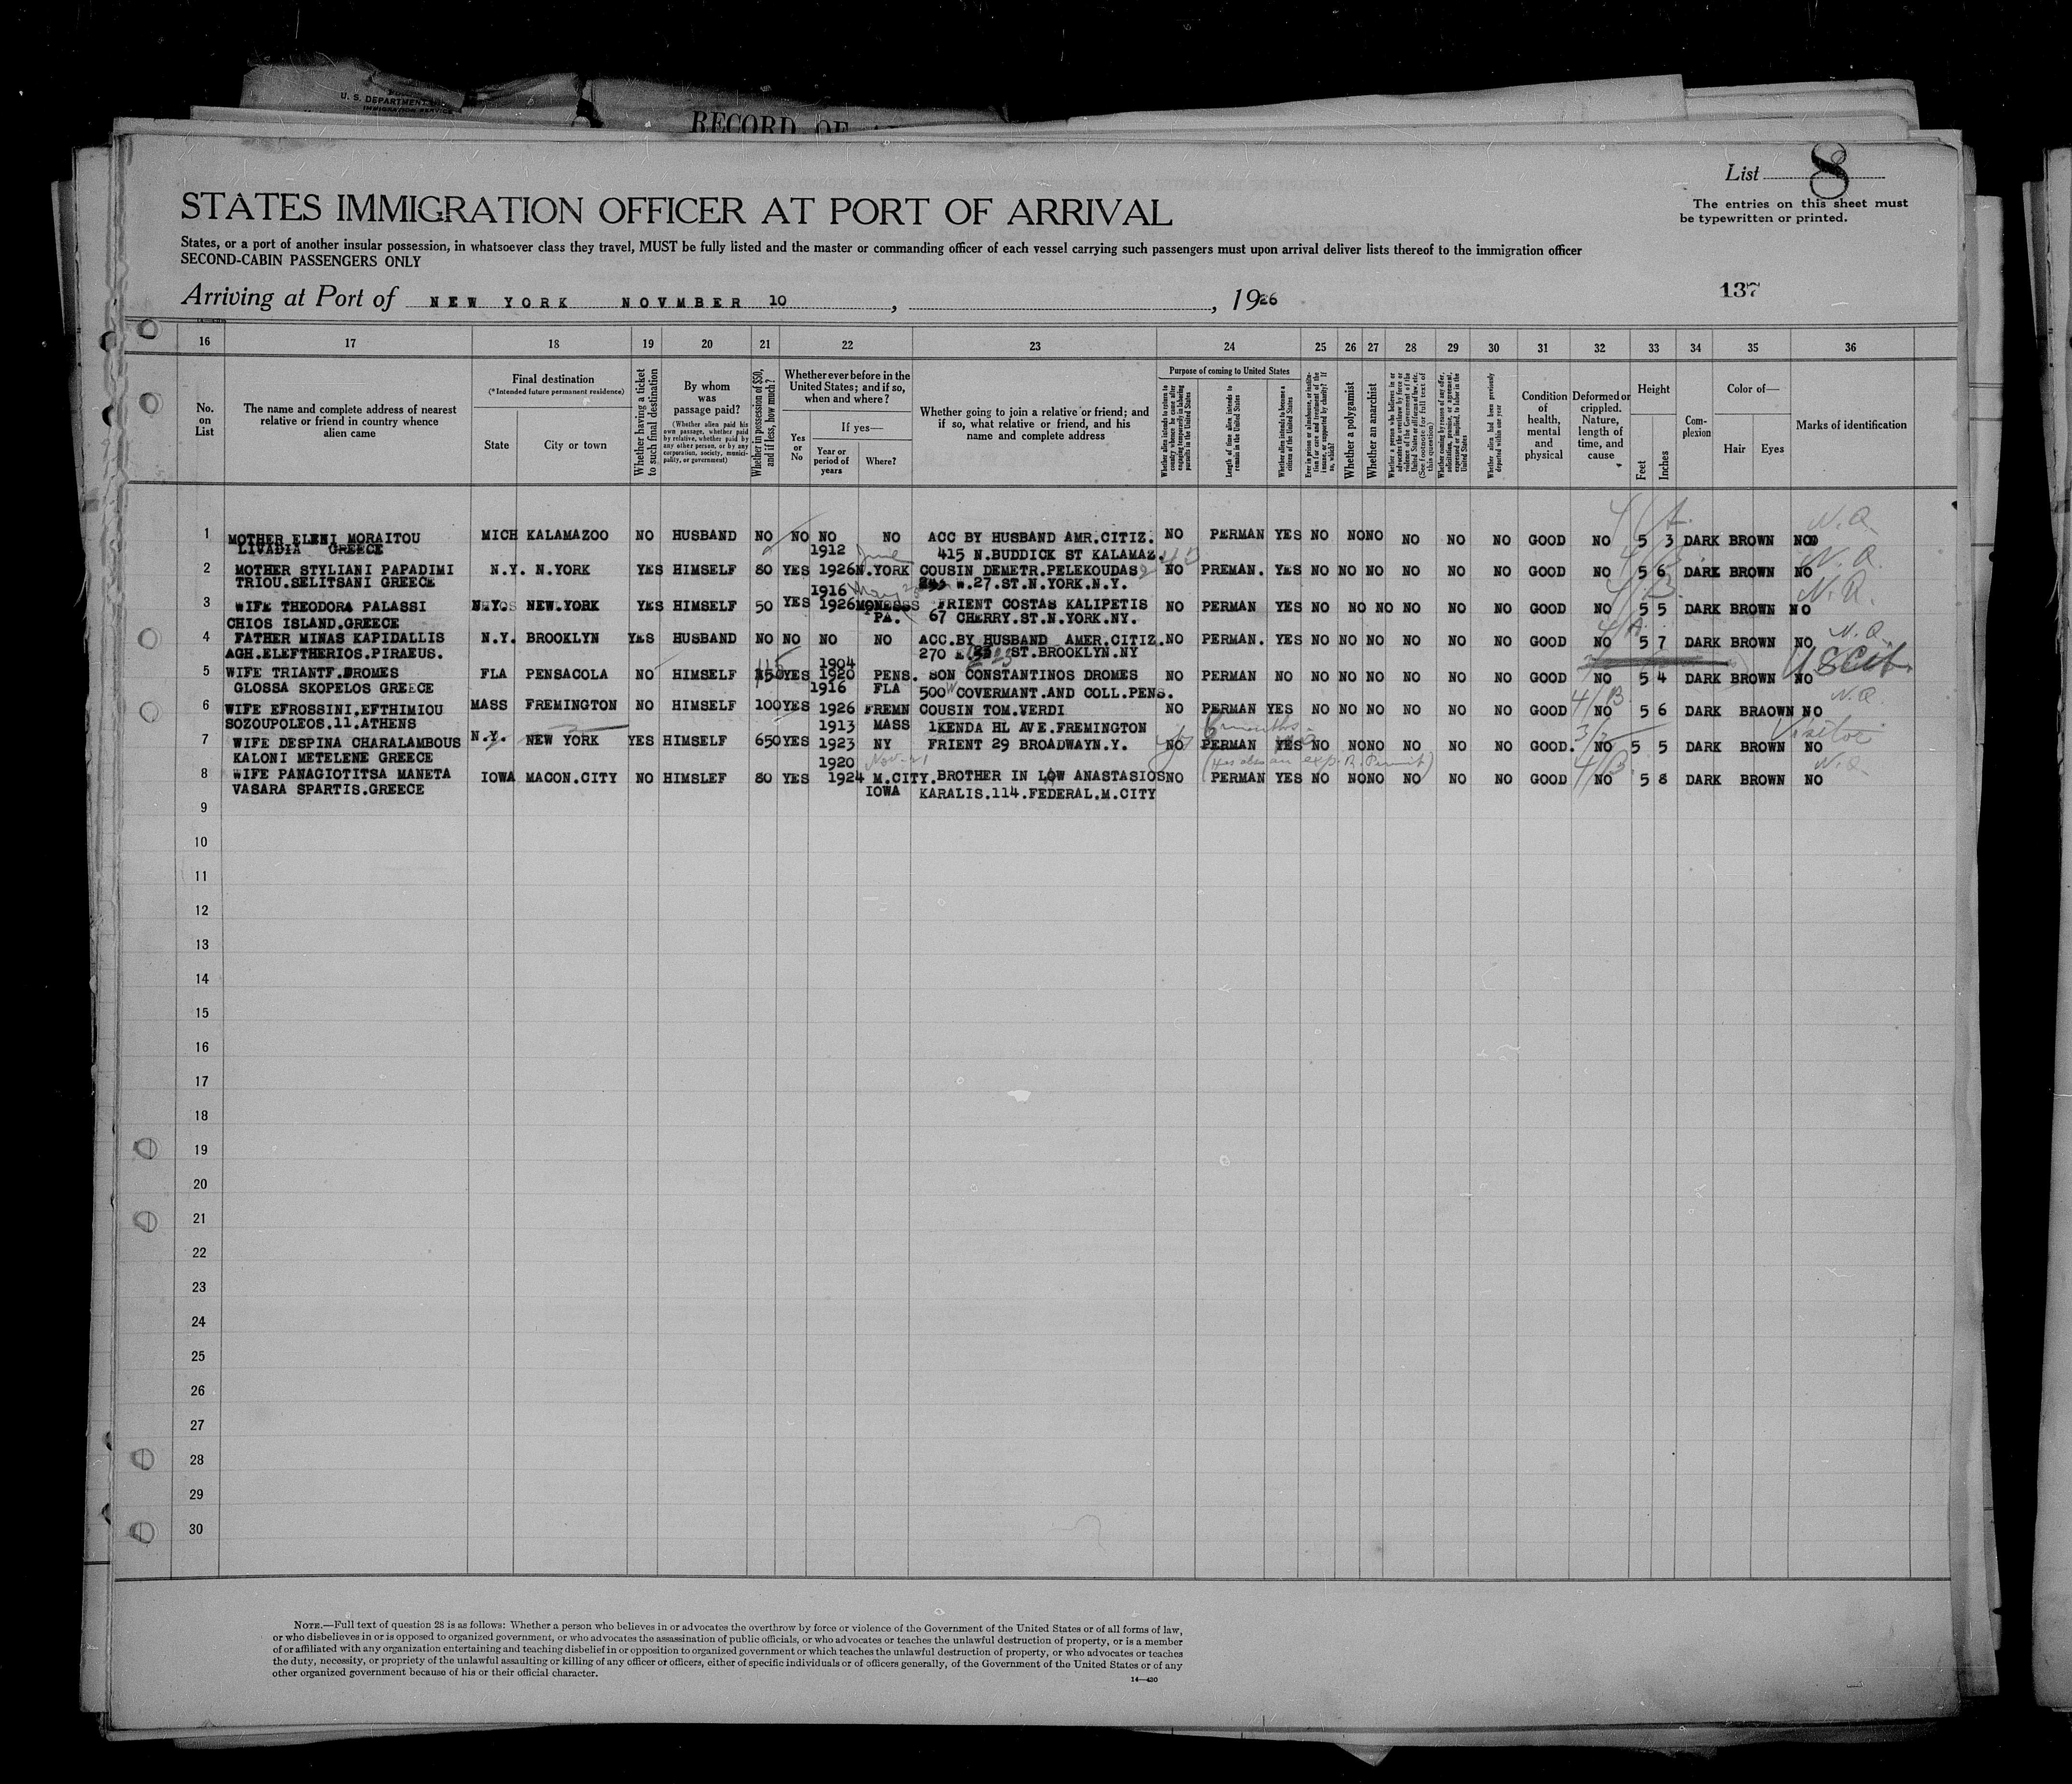 U. S. DEPARTMENT
IMMIGRATION SERVICE
RECORD OF
List 8
The entries on this sheet must
be typewritten or printed.
STATES IMMIGRATION OFFICER AT PORT OF ARRIVAL
States, or a port of another insular possession, in whatsoever class they travel, MUST be fully listed and the master or commanding officer of each vessel carrying such passengers must upon arrival deliver lists thereof to the immigration officer
SECOND-CABIN PASSENGERS ONLY
Arriving at Port of NEW YORK NOVMBER 10, , 1926
137
16 17 18 19 20 21 22 23 24 25 26 27 28 29 30 31 32 33 34 35 36
No. on List
The name and complete address of nearest relative or friend in country whence alien came
Final destination
(*Intended future permanent residence)
State
City or town
Whether having a ticket to such final destination
By whom was passage paid?
(Whether alien paid his own passage, whether paid by relative, whether paid by any other person, or by any corporation, society, municipality, or government)
Whether in possession of $50, and if less, how much?
Whether ever before in the United States; and if so, when and where?
Yes or No
If yes—
Year or period of years
Where?
Whether going to join a relative or friend; and if so, what relative or friend, and his name and complete address
Purpose of coming to United States
Whether alien intends to return to country whence he came after engaging temporarily in laboring pursuits in the United States
Length of time alien intends to remain in the United States
Whether alien intends to become a citizen of the United States
Whether a polygamist
Whether an anarchist
Whether alien had been previously deported within one year
Condition of health, mental and physical
Deformed or crippled. Nature, length of time, and cause
Height
Feet
Inches
Complexion
Color of—
Hair
Eyes
Marks of identification
1 MOTHER ELENI MORAITOU MICH KALAMAZOO NO HUSBAND NO NO NO NO ACC BY HUSBAND AMR.CITIZ. NO PERMAN YES NO NO NO NO NO NO GOOD NO 5 3 DARK BROWN NO N.Q.
LIVADIA GREECE 1912 June 415 N.BUDDICK ST KALAMAZ.
2 MOTHER STYLIANI PAPADIMI N.Y. N.YORK YES HIMSELF 80 YES 1926 N.YORK COUSIN DEMETR.PELEKOUDAS NO PREMAN. YES NO NO NO NO NO NO GOOD NO 5 6 DARK BROWN NO N.Q.
TRIOU.SELITSANI GREECE 1916 May W.27.ST.N.YORK.N.Y.
3 WIFE THEODORA PALASSI NEW.YORK YES HIMSELF 50 YES 1926 MONESSS FRIENT COSTAS KALIPETIS NO PERMAN YES NO NO NO NO NO NO GOOD NO 5 5 DARK BROWN NO N.Q.
CHIOS ISLAND.GREECE PA. 67 CHERRY.ST.N.YORK.NY.
4 FATHER MINAS KAPIDALLIS N.Y. BROOKLYN YES HUSBAND NO NO NO NO ACC.BY HUSBAND AMER.CITIZ. NO PERMAN. YES NO NO NO NO NO NO GOOD NO 5 7 DARK BROWN NO N.Q.
AGH.ELEFTHERIOS.PIRAEUS. 1904 270 ST.BROOKLYN.NY
5 WIFE TRIANTF.DROMES FLA PENSACOLA NO HIMSELF 115 YES 1920 PENS. SON CONSTANTINOS DROMES NO PERMAN NO NO NO NO NO NO NO GOOD NO 5 4 DARK BROWN NO U S Cit.
GLOSSA SKOPELOS GREECE 1916 FLA 500 W COVERMANT.AND COLL.PENS.
6 WIFE EFROSSINI,EFTHIMIOU MASS FREMINGTON NO HIMSELF 100 YES 1926 FREMN COUSIN TOM.VERDI NO PERMAN YES NO NO NO NO NO NO GOOD 4/B NO 5 6 DARK BRAOWN NO N.Q.
SOZOUPOLEOS.11.ATHENS 1913 MASS 1KENDA HL AVE.FREMINGTON 6 months
7 WIFE DESPINA CHARALAMBOUS N.Y. NEW YORK YES HIMSELF 650 YES 1923 NY FRIENT 29 BROADWAYN.Y. NO PERMAN YES NO NO NO NO NO NO GOOD. 3/2 NO 5 5 DARK BROWN NO Visitor
KALONI METELENE GREECE 1920 Nov-21 (Has also an exp. R. Permit)
8 WIFE PANAGIOTITSA MANETA IOWA MACON.CITY NO HIMSLEF 80 YES 1924 M.CITY. BROTHER IN LOW ANASTASIOS NO PERMAN YES NO NO NO NO NO NO GOOD 4/B NO 5 8 DARK BROWN NO N.Q.
VASARA SPARTIS.GREECE IOWA KARALIS.114.FEDERAL.M.CITY
9
10
11
12
13
14
15
16
17
18
19
20
21
22
23
24
25
26
27
28
29
30
NOTE.—Full text of question 28 is as follows: Whether a person who believes in or advocates the overthrow by force or violence of the Government of the United States or of all forms of law,
or who disbelieves in or is opposed to organized government, or who advocates the assassination of public officials, or who advocates or teaches the unlawful destruction of property, or is a member
of or affiliated with any organization entertaining and teaching disbelief in or opposition to organized government or which teaches the unlawful destruction of property, or who advocates or teaches
the duty, necessity, or propriety of the unlawful assaulting or killing of any officer or officers, either of specific individuals or of officers generally, of the Government of the United States or of any
other organized government because of his or their official character.
14—430